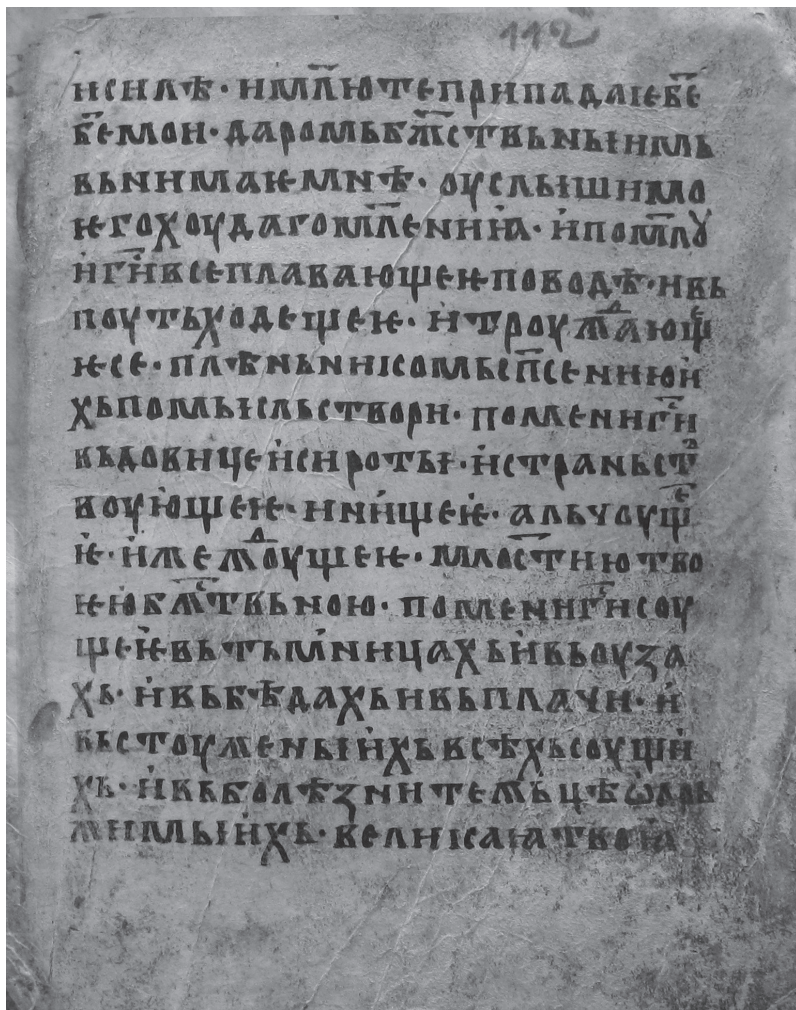 112
и силѣ· и мл҃ю те припадаѥ бе҃
бе҃ мои· даромь бж҃ствьныимь
вьнимаѥ мнѣ· оуслыши мо
ѥго хоудаго мл҃ениꙗ· и помлꙋ҃
и ги҃ все плаваюшеѥ по водѣ· и вь
поуть ходещеѥ· и троуждающ
ѥ се· плѣньникомь сп҃сению и
хь помыслъ створи· помени ги҃
въдовице и сироты· и страньст
воующеѥ· и нищеѥ· альчоущ
ѥ· и жеждоущеѥ· млостню тво
ѥю бж҃твьною· помени ги҃ соу
щеѥ вь тьмницахь и вь оуза
хь· и вь бѣдахь и вь плачи· и
вь стоуменыихь всѣхь соущи
хь· и вь болѣзни тежьцѣ ѡдрь
жимыихь· великаꙗ твоꙗ